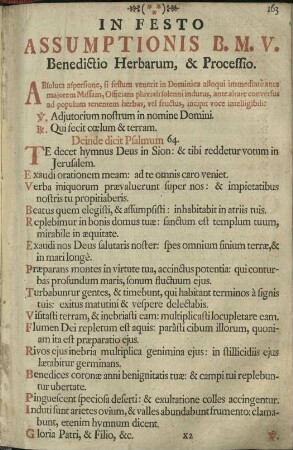 163
IN FESTO
ASSUMPTIONIS B. M. V.
Benedictio Herbarum, & Processio.
Absoluta aspersione, si festum venerit in Dominica, alioqui immediatè ante
majorem Missam, Officians pluviali solenni indutus, ante altare conversus
ad populum tenentem herbas, vel fructus, incipit voce intelligibili:
℣. Adjutorium nostrum in nomine Domini.
℟. Qui fecit cœlum & terram.
Deinde dicit Psalmum 64.
TE decet hymnus Deus in Sion: & tibi reddetur votum in
Jerusalem.
Exaudi orationem meam: ad te omnis caro veniet.
Verba iniquorum prævaluerunt super nos: & impietatibus
nostris tu propitiaberis.
Beatus quem elegisti, & assumpsisti: inhabitabit in atriis tuis.
Replebimur in bonis domus tuæ: sanctum est templum tuum,
mirabile in æquitate.
Exaudi nos Deus salutaris noster: spes omnium finium terræ, &
in mari longè.
Præparans montes in virtute tua, accinctus potentia: qui contur-
bas profundum maris, sonum fluctuum ejus.
Turbabuntur gentes, & timebunt, qui habitant terminos à signis
tuis: exitus matutini & vespere delectabis.
Visitasti terram, & inebriasti eam: multiplicasti locupletare eam.
Flumen Dei repletum est aquis: parâsti cibum illorum, quoni-
am ita est præparatio ejus.
Rivos ejus inebria multiplica genimina ejus: in stillicidiis ejus
lætabitur germinans.
Benedices coronæ anni benignitatis tuæ: & campi tui replebun-
tur ubertate.
Pinguescent speciosa deserti: & exultatione colles accingentur.
Induti sunt arietes ovium, & valles abundabunt frumento: clama-
bunt, etenim hymnum dicent.
Gloria Patri, & Filio, &c. X2 ℣.